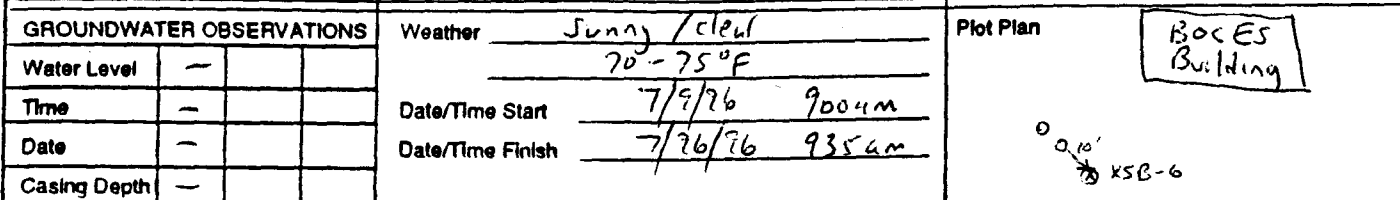 GROUNDWATER OBSERVATIONS
Water Level –
Time –
Date –
Casing Depth –
Weather Sunny / Clear
70° - 75°F
Date/Time Start 7/9/96 900am
Date/Time Finish 7/26/96 935am
Plot Plan
BOCES
Building
10'
XSB-6